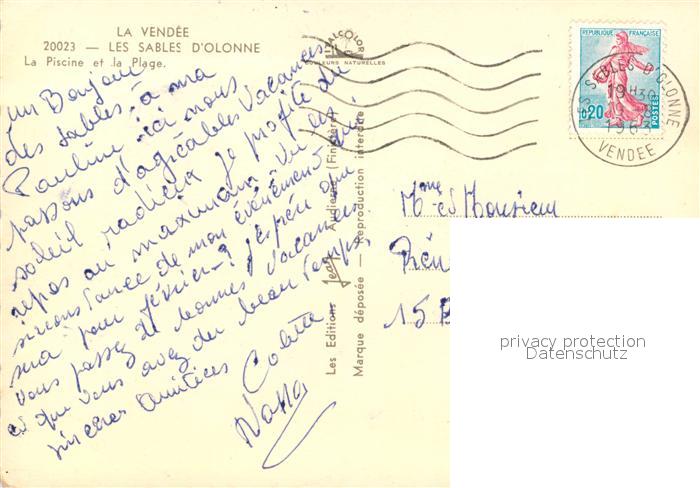 LA VENDÉE
20023 — LES SABLES D'OLONNE
La Piscine et la Plage.
COULEURS NATURELLES
RÉPUBLIQUE FRANÇAISE
0,20
POSTES
LES SABLES D'OLONNE
19H30
VENDEE
un Bonjour
des Sables à ma
Pauline ici nous
passons d'agréables vacances
soleil radieux je profite du
repos au maximum vu les
circonstance de mon événement qui
sera pour février-? J'espère que
vous passez de bonnes vacances
et que vous avez du beau temps,
sincères amitiées
Colette
Les Editions Jean Audierne (Finistère)
Marque déposée — Reproduction interdite
Mme et Monsieur
15
privacy protection
Datenschutz